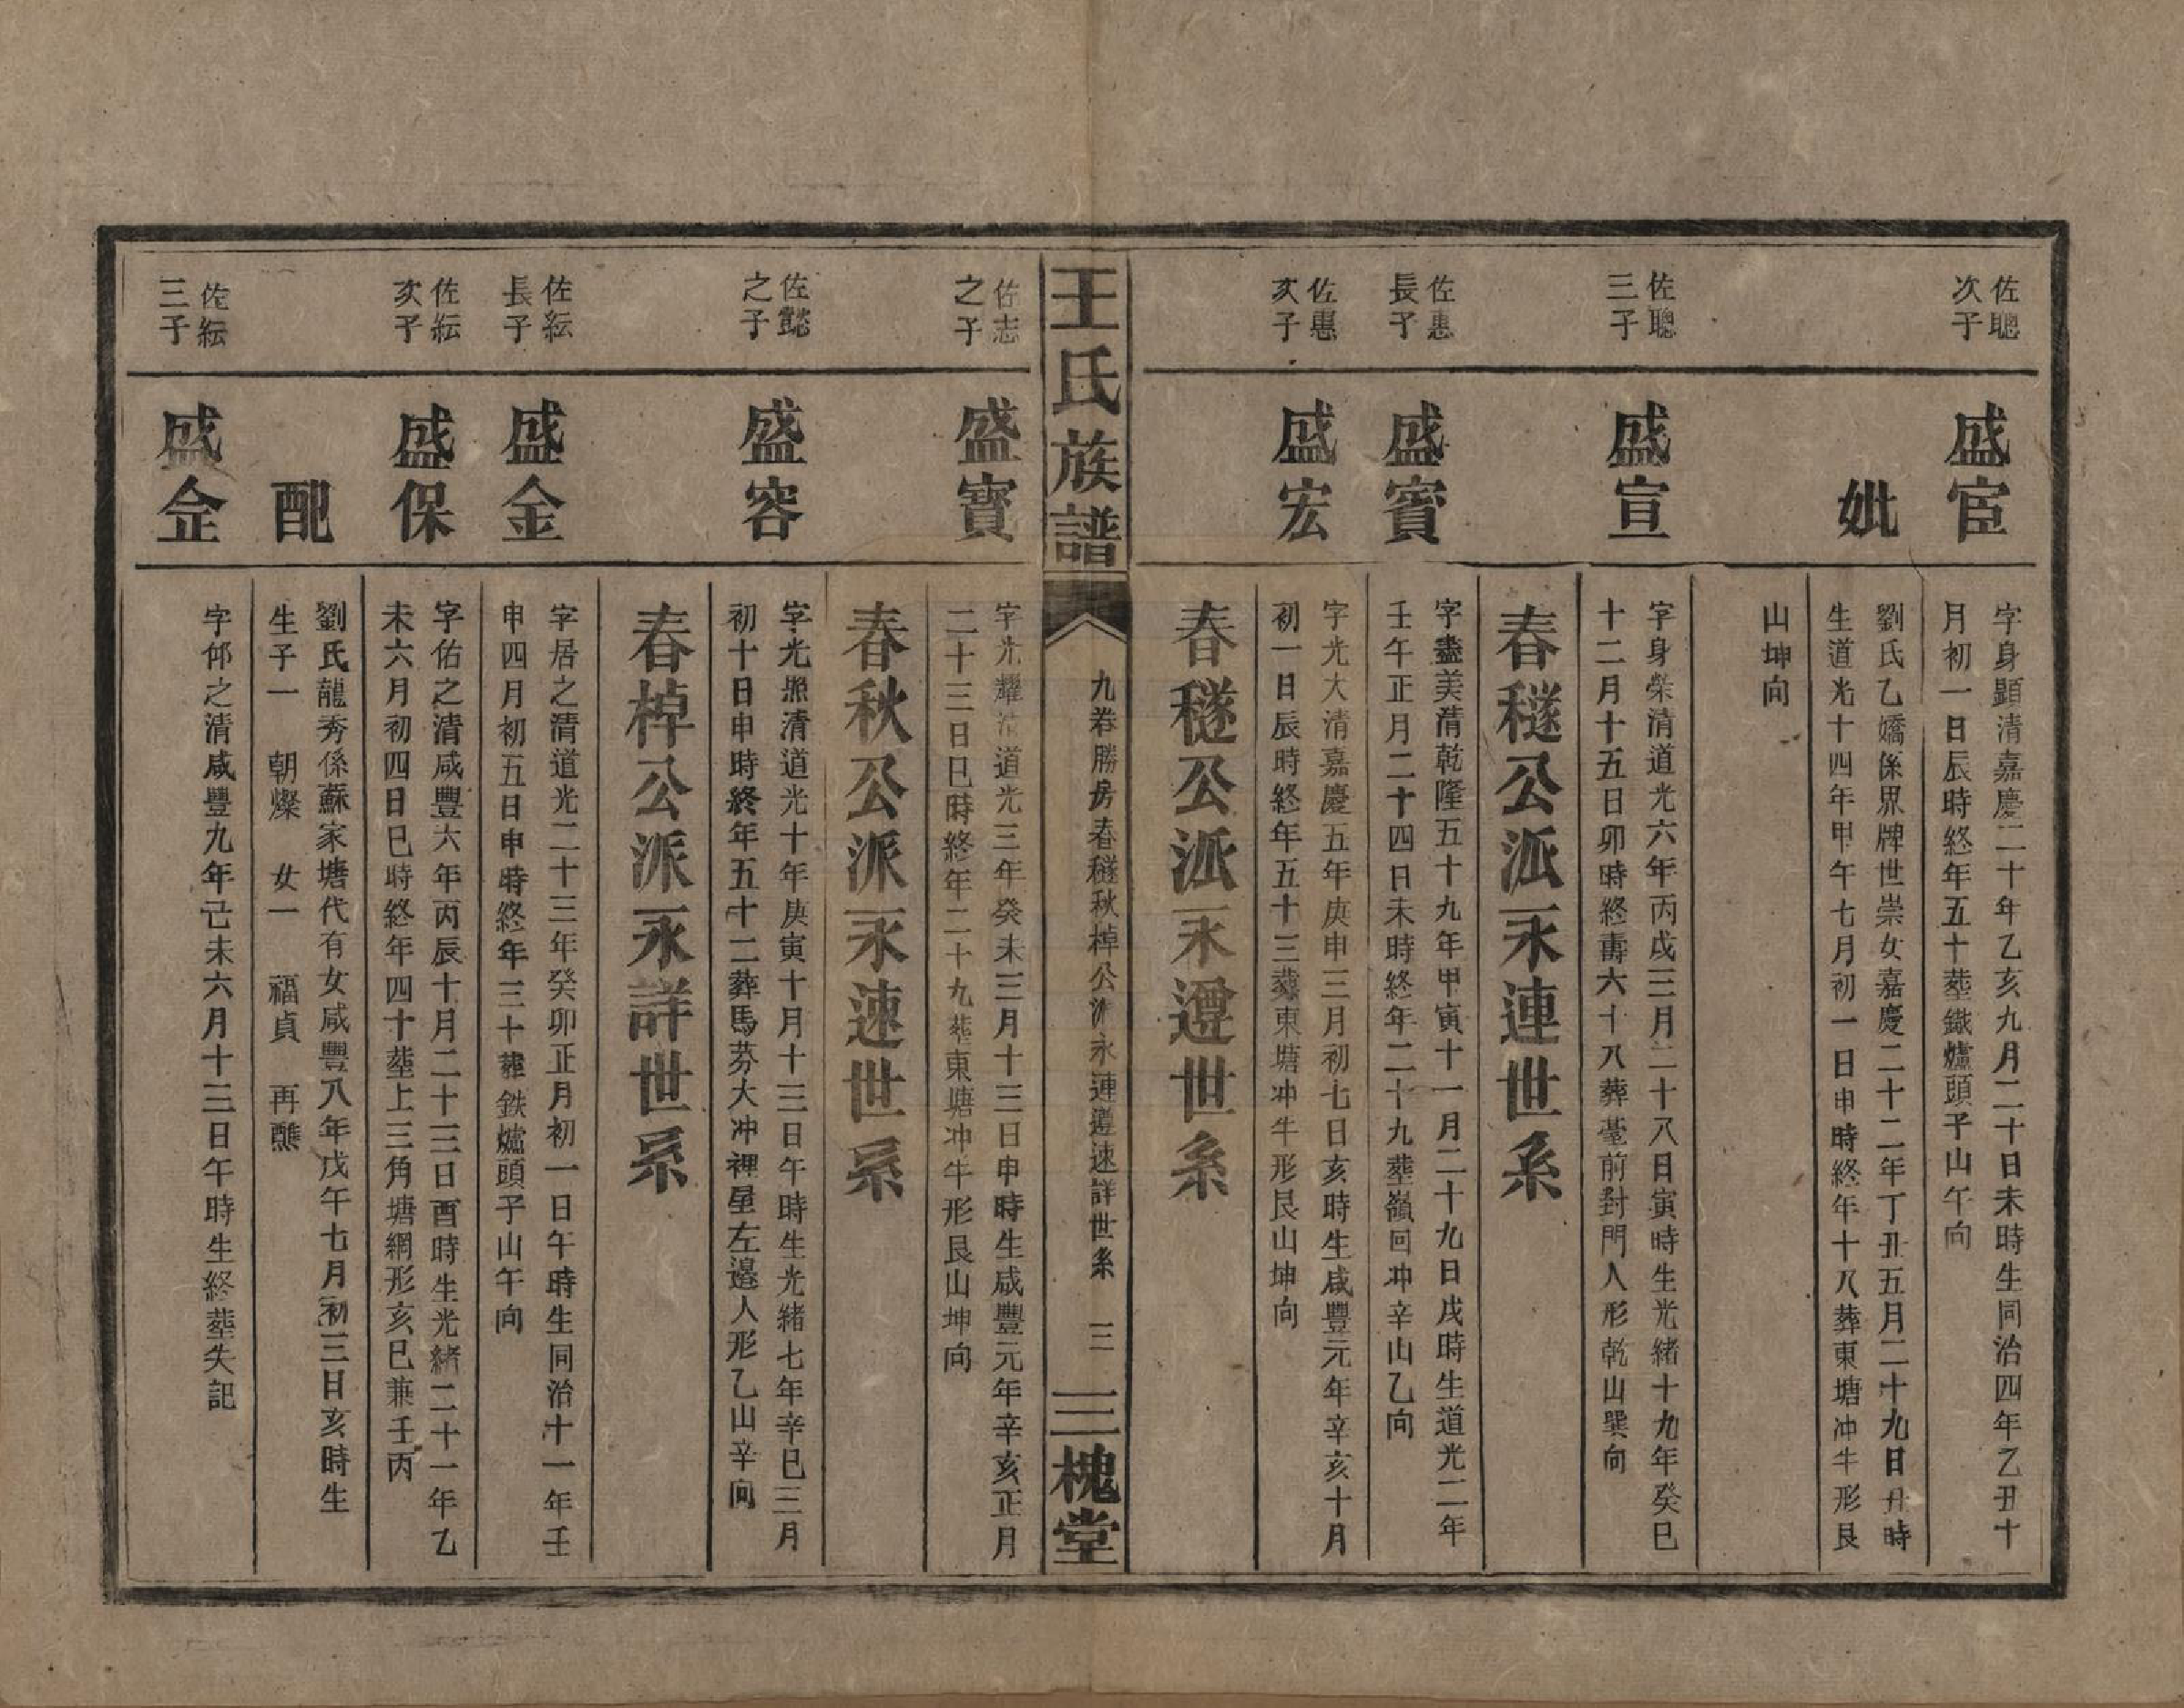 佐聰
次子
盛宦
字身顕清嘉慶二十年乙亥九月二十日未時生同治四年乙丑十
月初一日辰時終年五十塟鐵爐頭子山午向
妣
劉氏乙嬌係界牌世崇女嘉慶二十二年丁丑五月二十九日丑時
生道光十四年甲午七月初一日申時終年十八葬東塘冲牛形艮
山坤向
佐聰
三子
盛宣
字身榮清道光六年丙戌三月二十八日寅時生光緒十九年癸巳
十二月十五日卯時終壽六十八葬臺前對門人形乾山巽向
春穟公派永連世系
佐惠
長子
盛賓
字盡美清乾隆五十九年甲寅十一月二十九日戌時生道光二年
壬午正月二十四日未時終年二十九塟嶺回冲辛山乙向
佐惠
次子
盛宏
字光大清嘉慶五年庚申三月初七日亥時生咸豐元年辛亥十月
初一日辰時終年五十三葬東塘冲牛形艮山坤向
春穟公派永遵世系
王氏族譜
九卷勝房春穟秋棹公派永連遵速詳世系
三
三槐堂
佐志
之子
盛寶
字光耀清道光三年癸未三月十三日申時生咸豐元年辛亥正月
二十三日巳時終年二十九塟東塘冲牛形艮山坤向
春秋公派永速世系
佐懿
之子
盛容
字光照清道光十年庚寅十月十三日午時生光緒七年辛巳三月
初十日申時終年五十二葬馬芬大冲裡屋左邉人形乙山辛向
春棹公派永詳世系
佐紜
長子
盛金
字居之清道光二十三年癸卯正月初一日午時生同治十一年壬
申四月初五日申時終年三十葬鉄爐頭子山午向
佐紜
次子
盛保
字佑之清咸豐六年丙辰十月二十三日酉時生光緒二十一年乙
未六月初四日巳時終年四十塟上三角塘網形亥巳兼壬丙
配
劉氏龍秀係蘇家塘代有女咸豐八年戊午七月初三日亥時生
生子一 朝燦 女一 福貞 再醮
佐紜
三子
盛企
字仰之清咸豐九年己未六月十三日午時生終塟失記